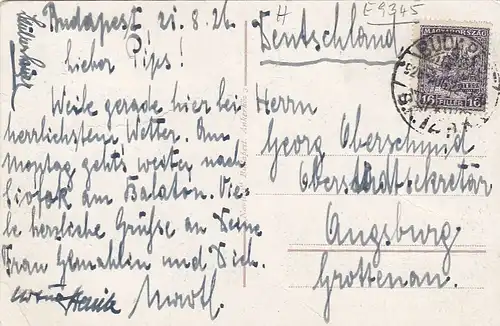 Budapest, 21.8.26
lieber Pips!
Weile gerade hier bei
herrlichstem Wetter. Am
Montag geht's weiter nach
Siofok am Balaton. Vie-
le herzliche Grüße an Deine
Frau Gemahlin und Dich.
H
E9345
Deutschland
Herrn
Georg Oberschmid
Oberstadtsekretär
Augsburg
Grottenau.
MAGYARORSZÁG
BUDAPEST
16 FILLÉR 16